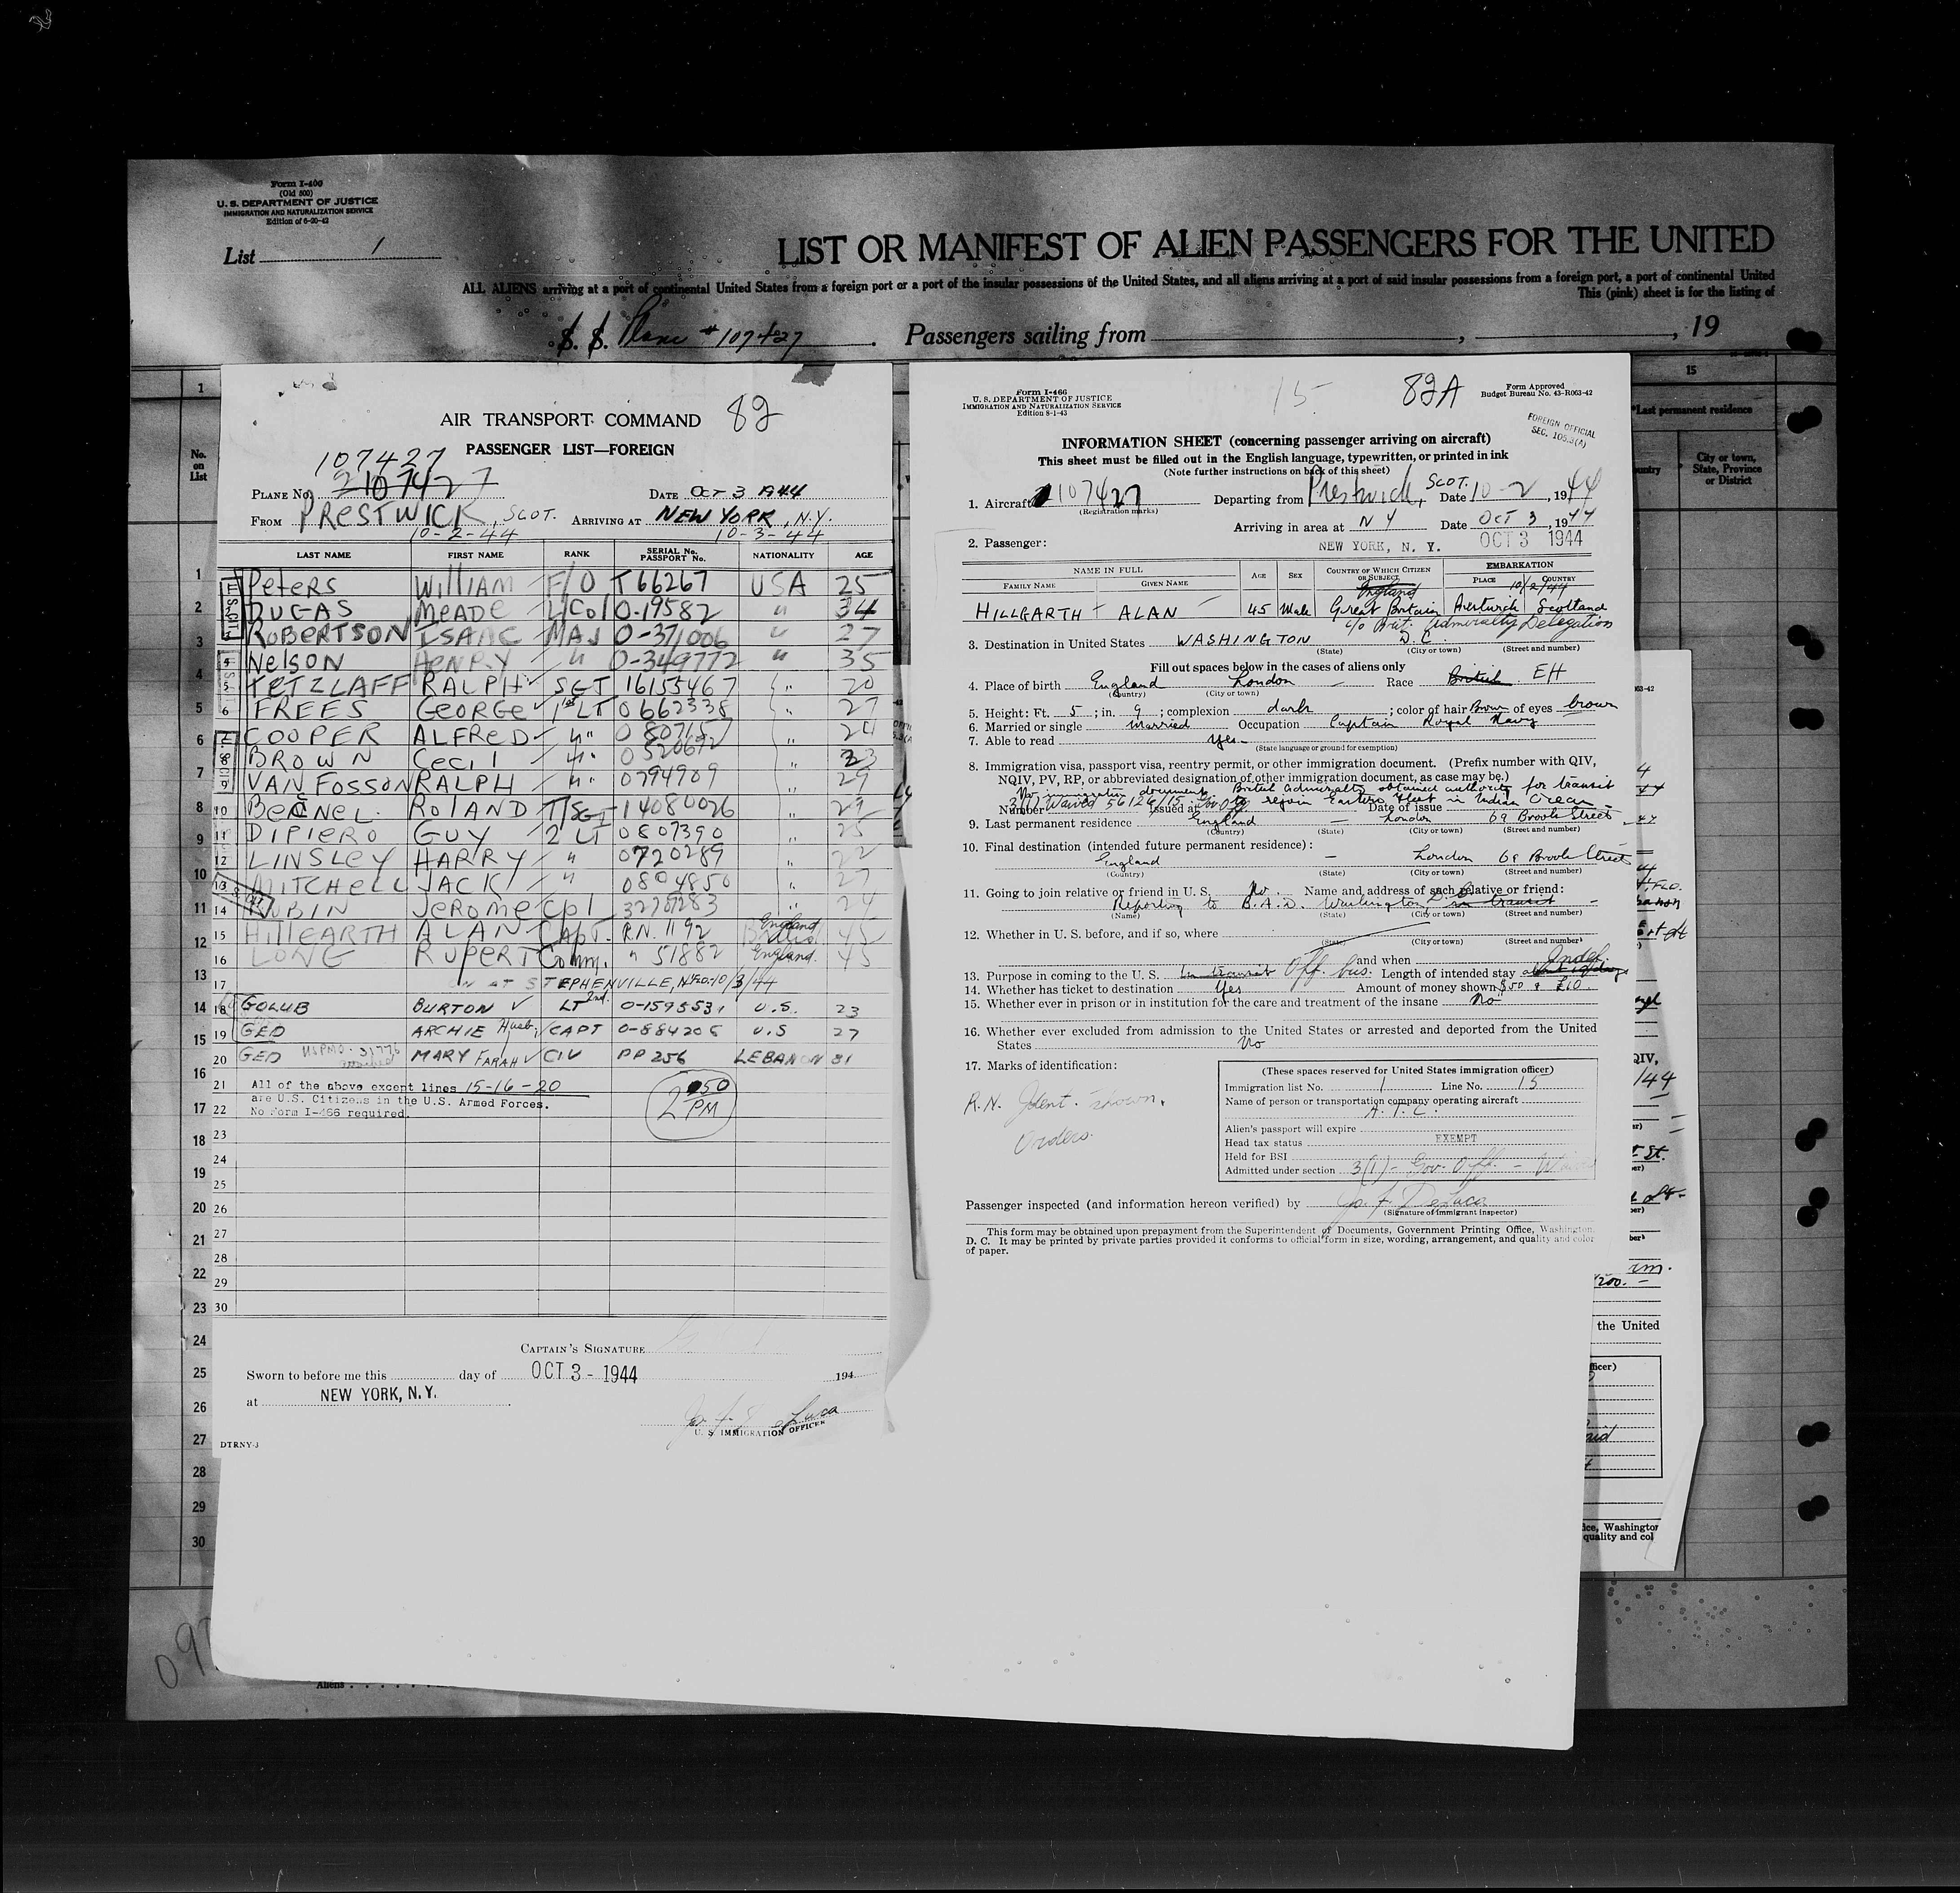 Form I-400
(Old 500)
U. S. DEPARTMENT OF JUSTICE
IMMIGRATION AND NATURALIZATION SERVICE
Edition of 6-20-42
List 1
LIST OR MANIFEST OF ALIEN PASSENGERS FOR THE UNITED
ALL ALIENS arriving at a port of continental United States from a foreign port or a port of the insular possessions of the United States, and all aliens arriving at a port of said insular possessions from a foreign port, a port of continental United
This (pink) sheet is for the listing of
S. S. Plane # 107427. Passengers sailing from , , 19
AIR TRANSPORT COMMAND 82
PASSENGER LIST—FOREIGN
107427
PLANE No. 2107427 DATE OCT 3 1944
FROM PRESTWICK, SCOT. ARRIVING AT NEW YORK, N.Y.
10-2-44 10-3-44
LAST NAME FIRST NAME RANK SERIAL No. PASSPORT No. NATIONALITY AGE
Peters William F/O T66267 USA 25
DUGAS MEADE Lt Col 0-19582 " 34
ROBERTSON ISAAC MAJ 0-371006 " 27
Nelson HENRY " 0-349772 " 35
TETZLAFF RALPH SGT 16155467 " 20
6 FREES GEORGE 1st LT 0662338 " 27
COOPER ALFRED " " 24
BROWN Cecil " 0520692 " 23
9 VAN FOSSON RALPH " 0794909 " 29
10 BERNEL ROLAND T/SGT 14080026 " 29
11 DIPIERO GUY 2 LT 0807390 " 25
12 LINSLEY HARRY " 0720289 " 22
13 MITCHELL JACK " 0804850 " 27
14 RUBIN JEROME Cpl " 24
15 HILLGARTH ALAN CAPT. R.N. 1192 England 45
16 LONG RUPERT Comm. " 51882 England. 45
17 ON AT STEPHENVILLE, NFD. 10/3/44
18 GOLUB BURTON LT 2nd. 0-1595531 U.S. 23
19 GED ARCHIE Husb. CAPT 0-884205 U.S 27
20 GED MARY FARAH CIV PP 256 LEBANON 31
21 All of the above except lines 15-16-20
are U.S. Citizens in the U.S. Armed Forces.
22 No Form I-466 required.
2 50 PM
23
24
25
26
27
28
29
30
CAPTAIN'S SIGNATURE
Sworn to before me this day of OCT 3 - 1944 194
at NEW YORK, N.Y.
Jo. F. DeLuca
U. S. IMMIGRATION OFFICER
DTRNY-3
Form I-466
U. S. DEPARTMENT OF JUSTICE
IMMIGRATION AND NATURALIZATION SERVICE
Edition 8-1-43
15 82A
Form Approved
Budget Bureau No. 43-R063-42
FOREIGN OFFICIAL
SEC. 105.3(A)
INFORMATION SHEET (concerning passenger arriving on aircraft)
This sheet must be filled out in the English language, typewritten, or printed in ink
(Note further instructions on back of this sheet)
1. Aircraft 107427 Departing from Prestwick, SCOT. Date 10-2, 1944
(Registration marks)
Arriving in area at N Y Date Oct 3, 1944
2. Passenger: NEW YORK, N. Y. OCT 3 1944
NAME IN FULL AGE SEX COUNTRY OF WHICH CITIZEN OR SUBJECT EMBARKATION
FAMILY NAME GIVEN NAME PLACE COUNTRY
England 10/2/44
HILLGARTH ALAN 45 Male Great Britain Prestwick Scotland
c/o Brit. Admiralty Delegation
3. Destination in United States WASHINGTON D.C.
(State) (City or town) (Street and number)
Fill out spaces below in the cases of aliens only
4. Place of birth England London Race British EH
(Country) (City or town)
5. Height: Ft. 5; in. 9; complexion dark; color of hair Brown of eyes brown
6. Married or single Married Occupation Captain Royal Navy
7. Able to read yes
(State language or ground for exemption)
8. Immigration visa, passport visa, reentry permit, or other immigration document. (Prefix number with QIV,
NQIV, PV, RP, or abbreviated designation of other immigration document, as case may be.)
No immigration document. British Admiralty obtained authority for transit
to rejoin Eastern Fleet in Indian Ocean
Number 3(1) Waived Issued at Date of issue
9. Last permanent residence England London 69 Brook Street
(Country) (State) (City or town) (Street and number)
10. Final destination (intended future permanent residence):
England London 69 Brook Street
(Country) (State) (City or town) (Street and number)
11. Going to join relative or friend in U.S. No. Name and address of such relative or friend:
Reporting to B.A.D. Washington, D.C. in transit
(Name) (State) (City or town) (Street and number)
12. Whether in U.S. before, and if so, where
(State) (City or town) (Street and number)
and when
13. Purpose in coming to the U. S. In transit Off. bus. Length of intended stay Indef.
14. Whether has ticket to destination Yes Amount of money shown $50 & £10.
15. Whether ever in prison or in institution for the care and treatment of the insane No
16. Whether ever excluded from admission to the United States or arrested and deported from the United
States No
17. Marks of identification:
R.N. Ident. shown.
Orders.
(These spaces reserved for United States immigration officer)
Immigration list No. 1 Line No. 15
Name of person or transportation company operating aircraft
A.T.C.
Alien's passport will expire
Head tax status EXEMPT
Held for BSI
Admitted under section 3(1) - Gov. Off. -
Passenger inspected (and information hereon verified) by Jo. F. DeLuca
(Signature of immigrant inspector)
This form may be obtained upon prepayment from the Superintendent of Documents, Government Printing Office, Washington,
D. C. It may be printed by private parties provided it conforms to official form in size, wording, arrangement, and quality and color
of paper.
No. on List
15
Last permanent residence
City or town, State, Province or District
the United
Aliens